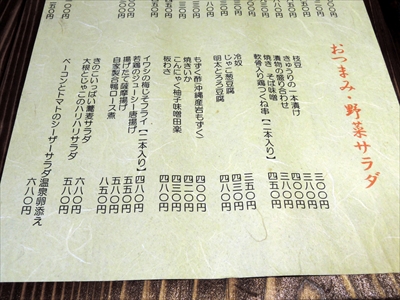 おつまみ・野菜サラダ
枝豆 三〇〇円
きゅうりの一本漬け 三〇〇円
漬物の盛り合わせ 三八〇円
焼き・そば味噌 三八〇円
軟骨入り鶏つくね串【二本入り】 四五〇円
冷奴 三五〇円
じゃこ葱豆腐 四三〇円
明太とろろ豆腐 四八〇円
もずく酢(沖縄産岩もずく) 四〇〇円
焼きいか 四二〇円
こんにゃく柚子味噌田楽 四三〇円
板わさ 四八〇円
イワシの梅じそフライ【二本入り】 四八〇円
若鶏のジューシー唐揚げ 五五〇円
揚げたて薩摩揚げ 五八〇円
自家製合鴨ロース煮 八五〇円
きのこいっぱい蕎麦サラダ 五八〇円
大根とじゃこのハリハリサラダ 五八〇円
ベーコンとトマトのシーザーサラダ温泉卵添え 六八〇円